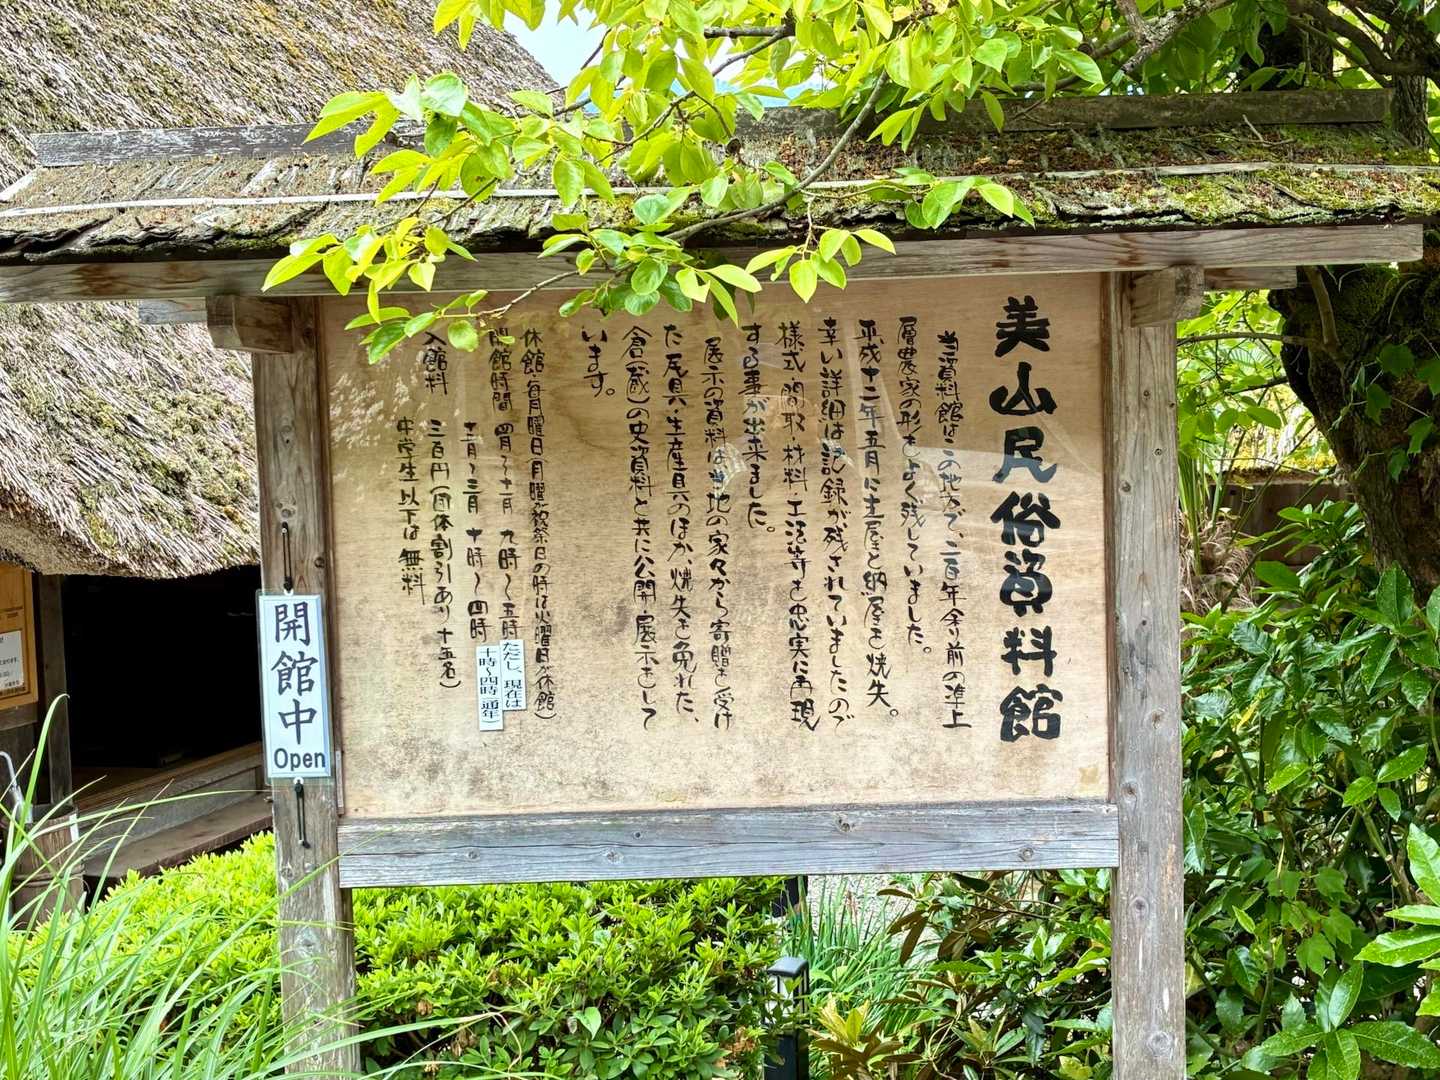 美山民俗資料館
当資料館はこの地方で、二百年余り前の準上
層農家の形をよく残していました。
平成十二年五月に主屋と納屋を焼失。
幸い詳細は記録が残されていましたので
様式・間取・材料・工法等を忠実に再現
する事が出来ました。
展示の資料は当地の家々から寄贈を受け
た民具・生産具のほか、焼失を免れた、
倉(蔵)の史資料と共に公開・展示をして
います。
休館・毎月曜日(月曜が祝祭日の時は火曜日が休館)
開館時間 四月〜十一月 九時〜五時
ただし、現在は
十時〜四時(通年)
十二月〜三月 十時〜四時
入館料 三百円(団体割引あり 十五名)
中学生以下は無料
開館中
Open